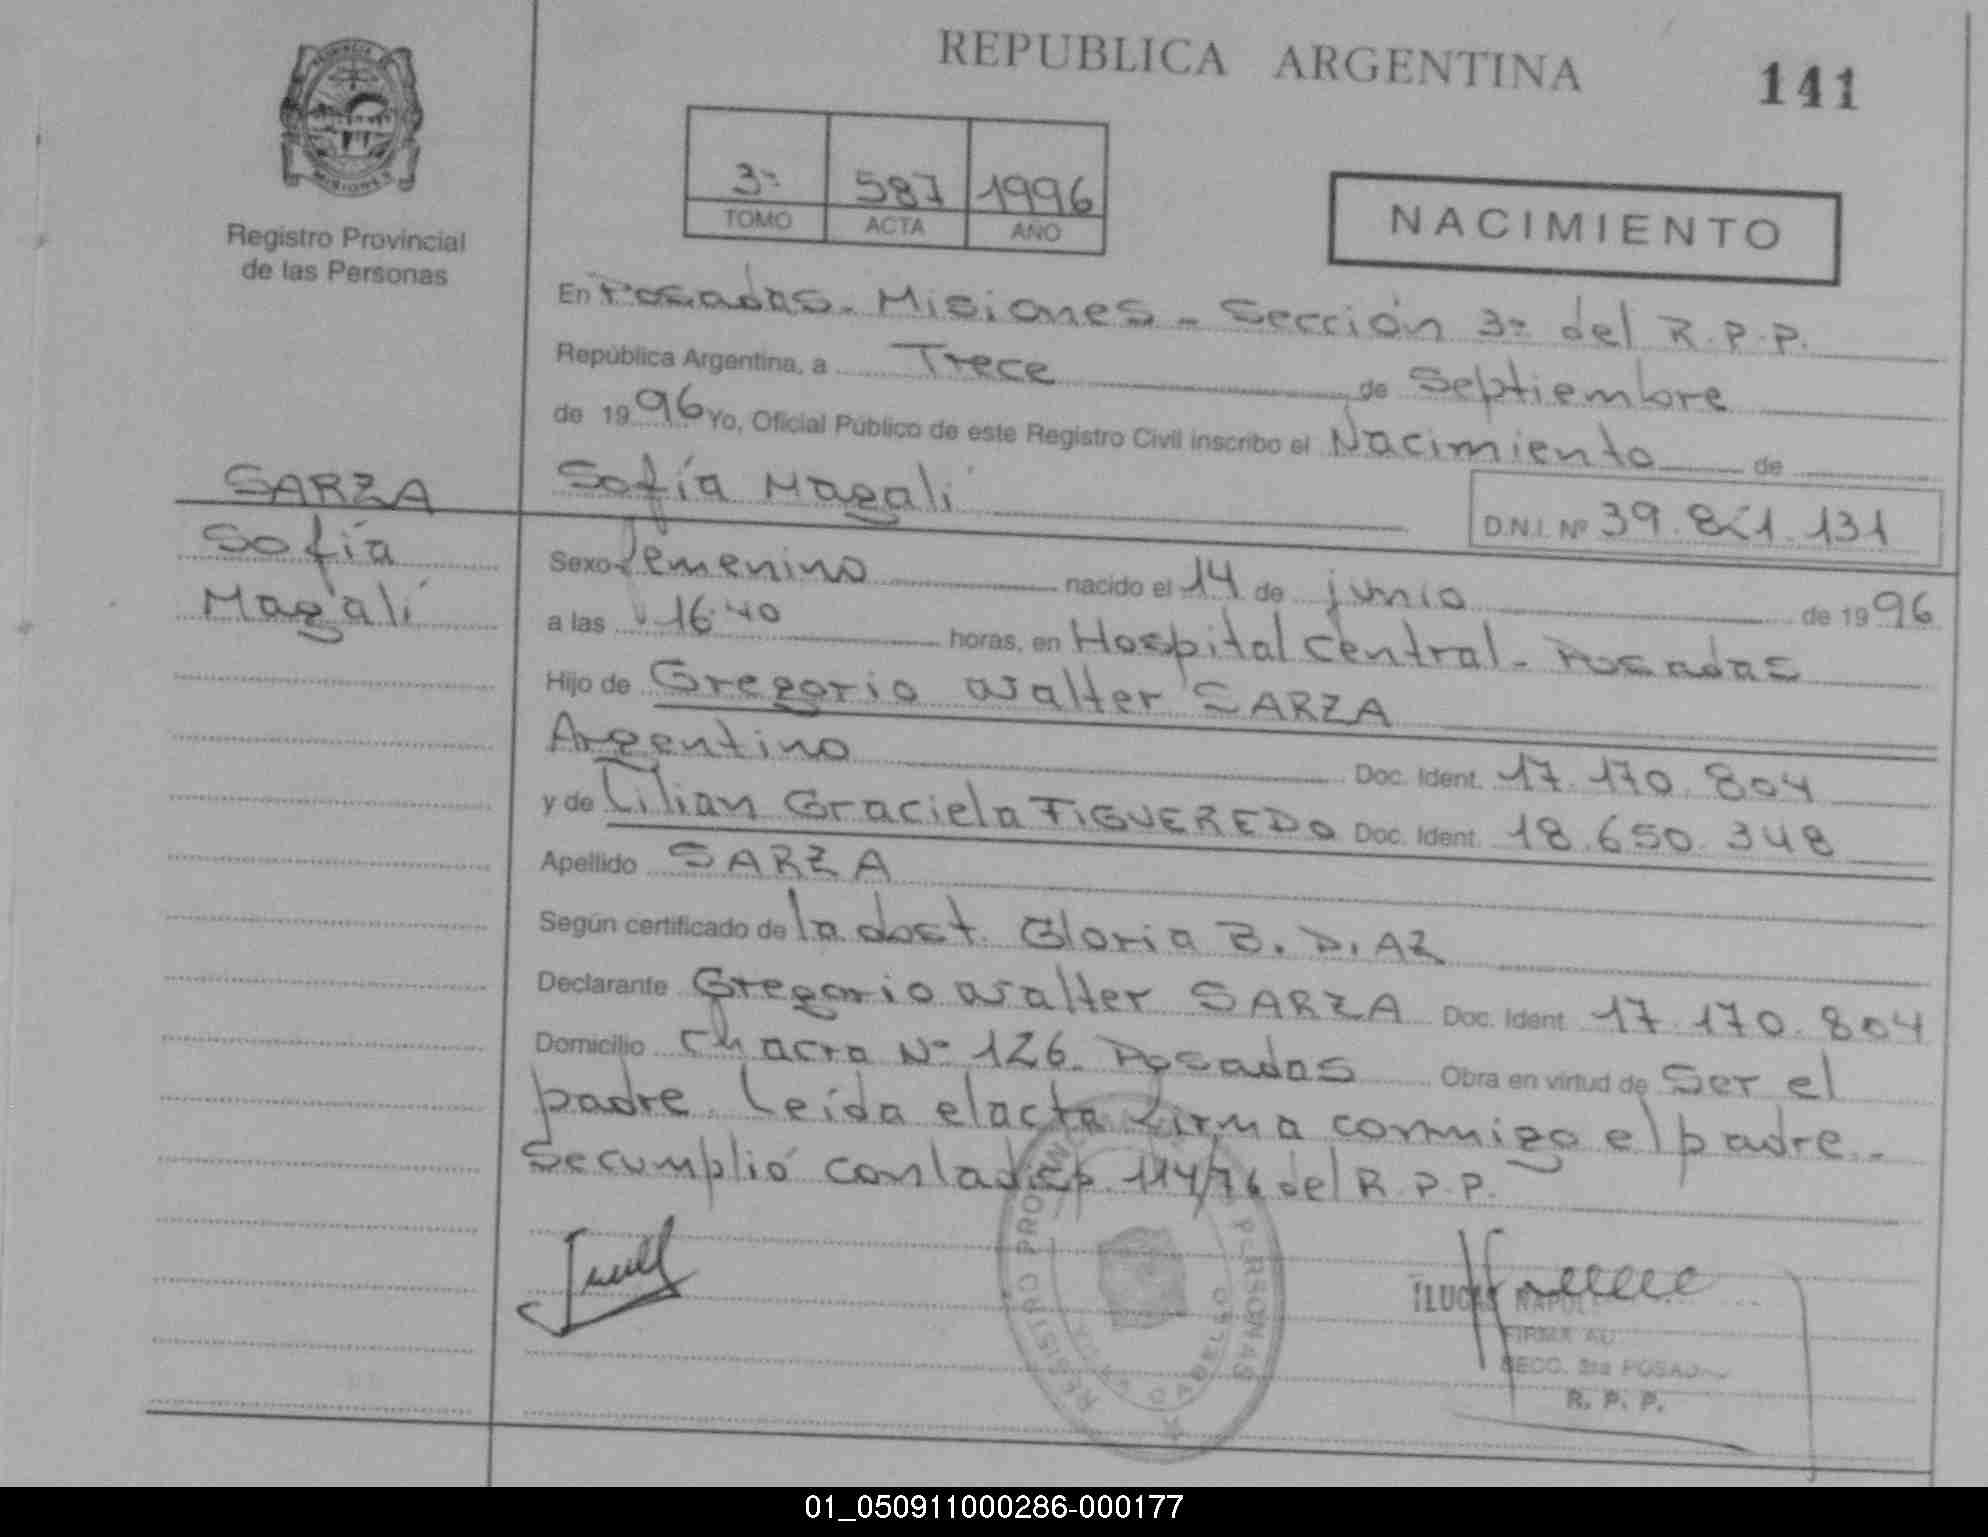 REPUBLICA ARGENTINA
141
3ª 587 1996
TOMO ACTA AÑO
NACIMIENTO
Registro Provincial
de las Personas
En Posadas - Misiones - Sección 3ª del R.P.P.
República Argentina, a Trece de Septiembre
de 1996 Yo, Oficial Público de este Registro Civil inscribo el Nacimiento de
SARZA
Sofía
Magalí
Sofía Magalí
D.N.I. Nº 39.821.131
Sexo femenino nacido el 14 de junio de 1996
a las 16.40 horas, en Hospital Central - Posadas
Hijo de Gregorio Walter SARZA
Argentino Doc. Ident. 17.170.804
y de Lilian Graciela FIGUEREDO Doc. Ident. 18.650.348
Apellido SARZA
Según certificado de la doct. Gloria B. DIAZ
Declarante Gregorio Walter SARZA Doc. Ident. 17.170.804
Domicilio Chacra Nº 126. Posadas Obra en virtud de Ser el
padre. Leída el acta firma conmigo el padre.-
Se cumplió con la disp. 114/76 del R.P.P.
REGISTRO PERSONAS
FIRMA AU
SECC. 3ra POSAD
R. P. P.
01_050911000286-000177